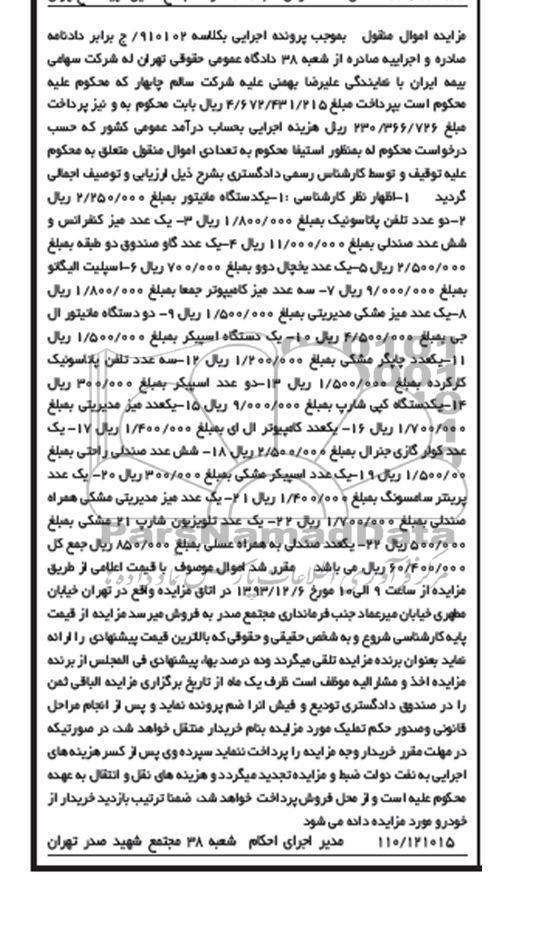 مزایده اموال منقول   بموجب پرونده اجرایی بکلاسه ۹۱۰۱۰۲/ ج برابر دادنامه
صادره و اجراییه صادره از شعبه ۳۸ دادگاه عمومی حقوقی تهران له شرکت سهامی
بیمه ایران با نمایندگی علیرضا بهمنی علیه شرکت سالم چابهار که محکوم علیه
محکوم است بپرداخت مبلغ ۴/۶۷۲/۴۳۱/۲۱۵ ریال بابت محکوم به و نیز پرداخت
مبلغ ۲۳۰/۳۶۶/۷۲۶ ریال هزینه اجرایی بحساب درآمد عمومی کشور که حسب
درخواست محکوم له بمنظور استیفا محکوم به تعدادی اموال منقول متعلق به محکوم
علیه توقیف و توسط کارشناس رسمی دادگستری بشرح ذیل ارزیابی و توصیف اجمالی
گردید   ۱-اظهار نظر کارشناسی :۱-یکدستگاه مانیتور بمبلغ ۲/۲۵۰/۰۰۰ ریال
۲-دو عدد تلفن پاناسونیک بمبلغ ۱/۸۰۰/۰۰۰ ریال ۳- یک عدد میز کنفرانس و
شش عدد صندلی بمبلغ ۱۱/۰۰۰/۰۰۰ ریال ۴-یک عدد گاو صندوق دو طبقه بمبلغ
۲/۵۰۰/۰۰۰ ریال ۵-یک عدد یخچال دوو بمبلغ ۷۰۰/۰۰۰ ریال ۶-اسپلیت الیگانو
بمبلغ ۹/۰۰۰/۰۰۰ ریال ۷- سه عدد میز کامپیوتر جمعا بمبلغ ۱/۸۰۰/۰۰۰ ریال
۸-یک عدد میز مشکی مدیریتی بمبلغ ۱/۵۰۰/۰۰۰ ریال ۹- دو دستگاه مانیتور ال
جی بمبلغ ۴/۵۰۰/۰۰۰ ریال ۱۰- یک دستگاه اسپیکر بمبلغ ۱/۵۰۰/۰۰۰ ریال
۱۱-یکعدد چاپگر مشکی بمبلغ ۱/۲۰۰/۰۰۰ ریال ۱۲-سه عدد تلفن پاناسونیک
کارکرده بمبلغ ۱/۵۰۰/۰۰۰ ریال ۱۳-دو عدد اسپیکر بمبلغ ۳۰۰/۰۰۰ ریال
۱۴-یکدستگاه کپی شارپ بمبلغ ۹/۰۰۰/۰۰۰ ریال ۱۵-یکعدد میز مدیریتی بمبلغ
۱/۷۰۰/۰۰۰ ریال ۱۶- یکعدد کامپیوتر ال ای بمبلغ ۱/۴۰۰/۰۰۰ ریال ۱۷- یک
عدد کولر گازی جنرال بمبلغ ۲/۵۰۰/۰۰۰ ریال ۱۸- شش عدد صندلی راحتی بمبلغ
۱/۵۰۰/۰۰ ریال ۱۹-یک عدد اسپیکر مشکی بمبلغ ۳۰۰/۰۰۰ ریال ۲۰- یک عدد
پرینتر سامسونگ بمبلغ ۱/۴۰۰/۰۰۰ ریال ۲۱- یک عدد میز مدیریتی مشکی همراه
صندلی بمبلغ ۱/۷۰۰/۰۰۰ ریال ۲۲- یک عدد تلویزیون شارپ ۲۱ مشکی بمبلغ
۵۰۰/۰۰۰ ریال ۲۲- یکعدد صندلی به همراه عسلی بمبلغ ۸۵۰/۰۰۰ ریال جمع کل
۶۰/۴۰۰/۰۰۰ ریال می باشد   مقرر شد اموال موصوف  با قیمت اعلامی از طریق
مزایده از ساعت ۹ الی۱۰ مورخ ۱۳۹۳/۱۲/۶ در اتاق مزایده واقع در تهران خیابان
مطهری خیابان میرعماد جنب فرمانداری مجتمع صدر به فروش میرسد مزایده از قیمت
پایه کارشناسی شروع و به شخص حقیقی و حقوقی که بالاترین قیمت پیشنهادی را ارائه
نماید بعنوان برنده مزایده تلقی میگردد وده درصد بهای پیشنهادی فی المجلس از برنده
مزایده اخذ و مشارالیه موظف است ظرف یک ماه از تاریخ برگزاری مزایده الباقی ثمن
را در صندوق دادگستری تودیع و فیش انرا ضم پرونده نماید و پس از انجام مراحل
قانونی وصدور حکم تملیک مورد مزایده بنام خریدار منتقل خواهد شد، در صورتیکه
در مهلت مقرر خریدار وجه مزایده را پرداخت ننماید سپرده وی پس از کسر هزینه های
اجرایی به نفت دولت ضبط و مزایده تجدید میگردد و هزینه های نقل و انتقال به عهده
محکوم علیه است و از محل فروش پرداخت خواهد شد، ضمنا ترتیب بازدید خریدار از
خودرو مورد مزایده داده می شود
۱۱۰/۱۲۱۰۱۵   مدیر اجرای احکام  شعبه ۳۸ مجتمع شهید صدر تهران
ParsNamadData